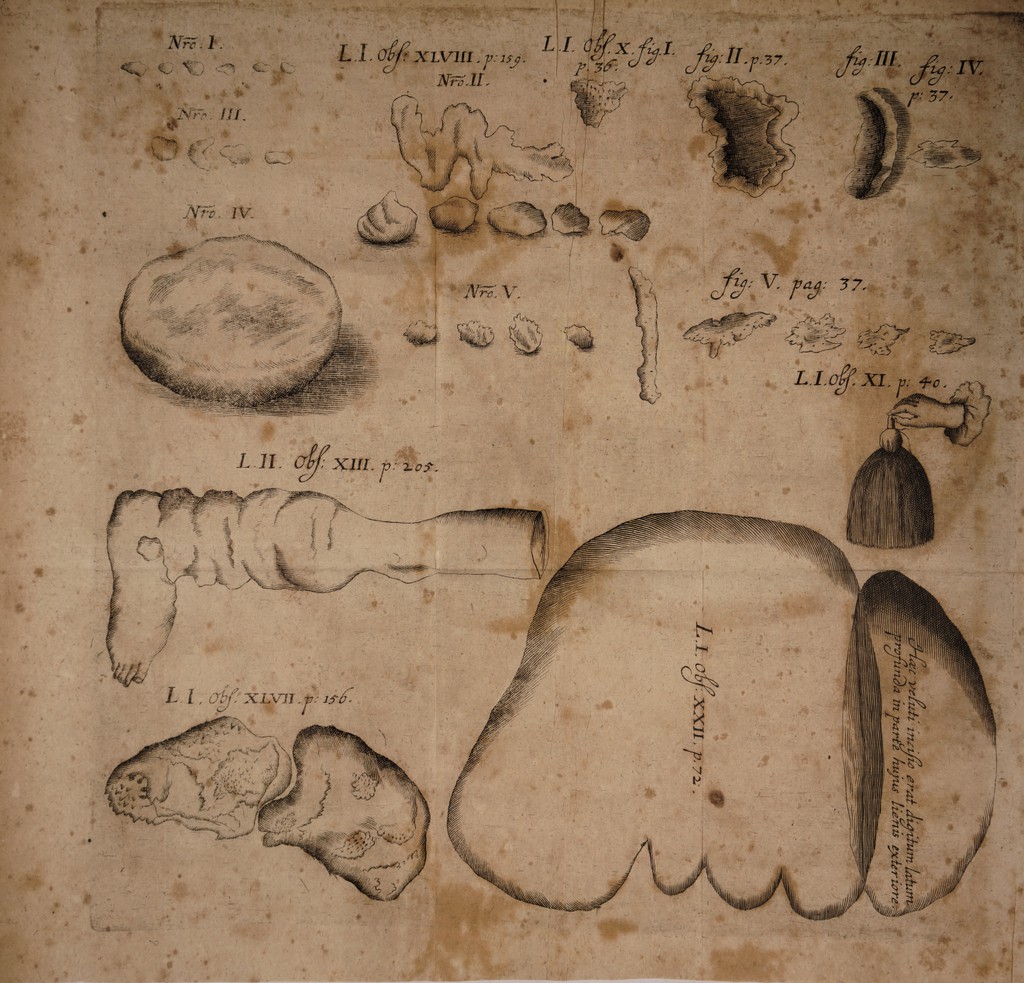 Nrõ. I.
L. I. Obs: XLVIII. p: 159.
Nrõ. II.
L. I. Obs. X. fig. I.
p. 36.
fig: II. p. 37.
fig: III.
fig: IV.
p: 37.
Nrõ. III.
Nrõ. IV.
Nrõ. V.
fig: V. pag: 37.
L. I. Obs. XI. p: 40.
L. II. Obs: XIII. p: 205.
L. I. Obs: XXII. p. 72.
Hæc veluti incisio erat digitum latum
profunda in parte hujus lienis exteriore.
L. I. Obs: XLVII. p: 156.